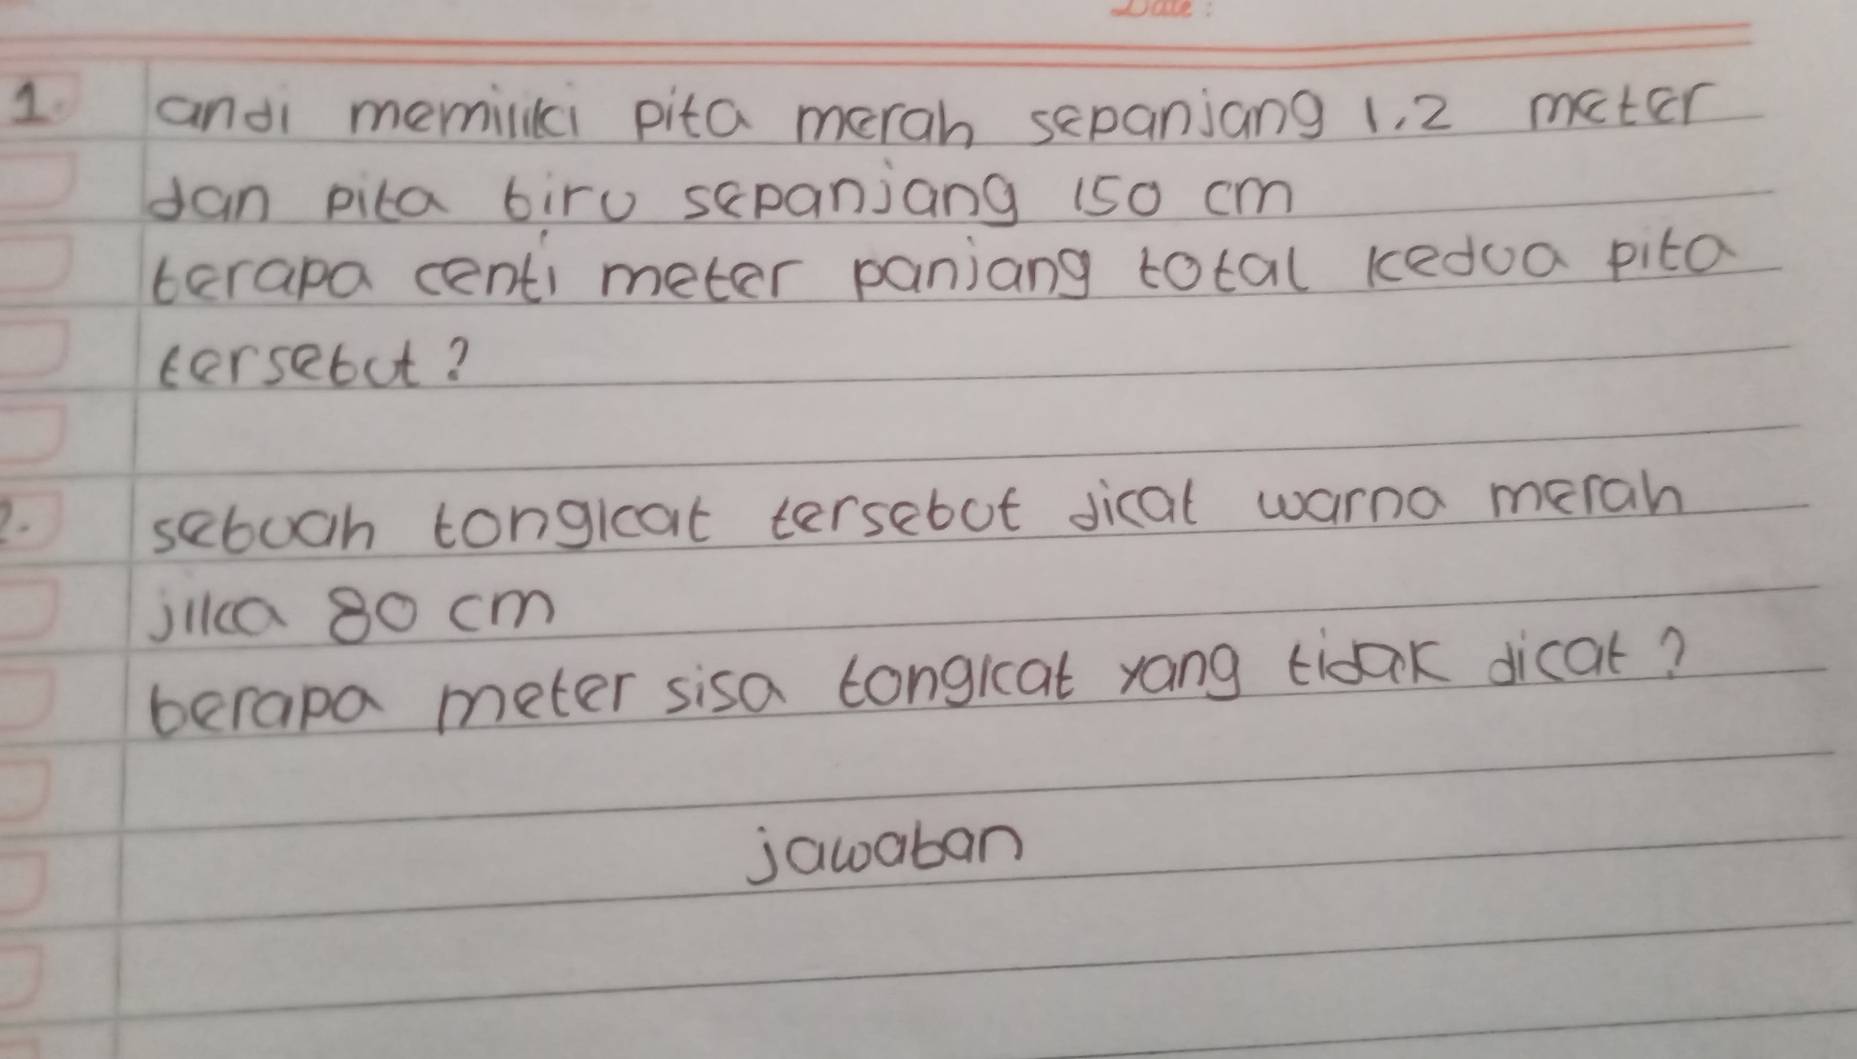 Date :
1. andi memiliki pita merah sepanjang 1,2 meter
dan pita biru sepanjang 150 cm
berapa centi meter panjang total kedua pita
tersebut?
2. sebuah tongkat tersebut dicat warna merah
jika 80 cm
berapa meter sisa tongkat yang tidak dicat?
jawaban